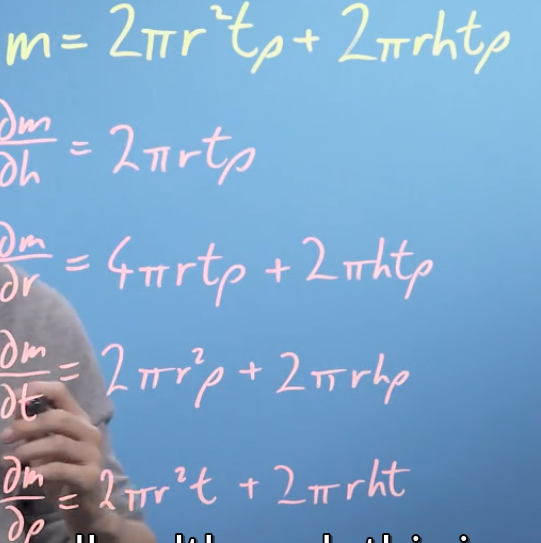 m = 2πr²tρ + 2πrhtρ
∂m/∂h = 2πrtρ
∂m/∂r = 4πrtρ + 2πhtρ
∂m/∂t = 2πr²ρ + 2πrhρ
∂m/∂ρ = 2πr²t + 2πrht